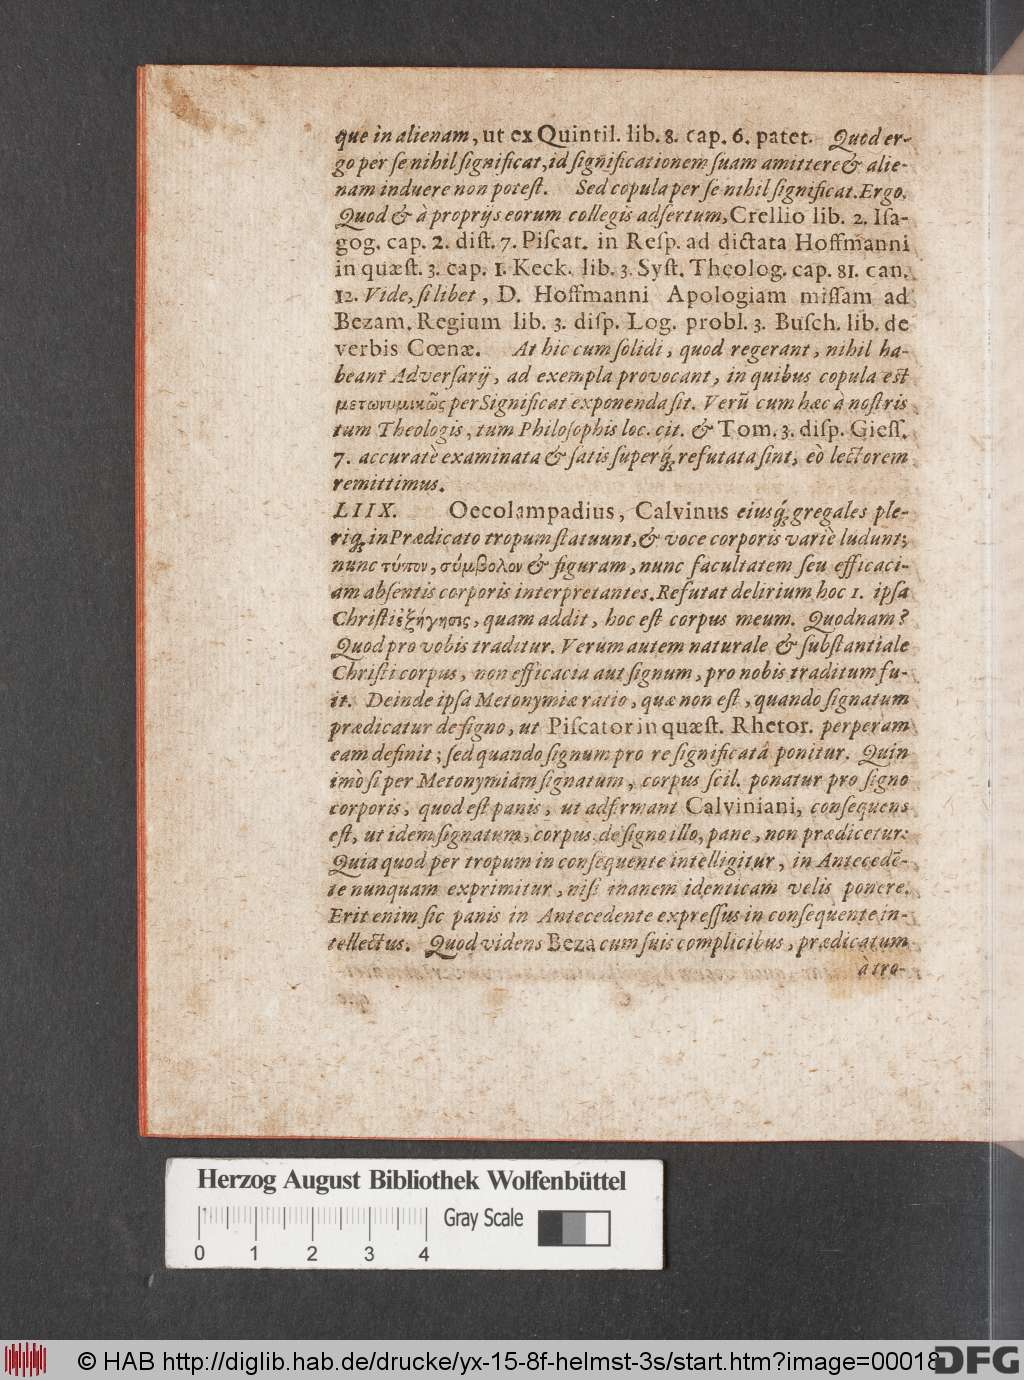 que in alienam, ut ex Quintil. lib. 8. cap. 6. patet. Quod er-
go per se nihil significat, id significationem suam amittere & alie-
nam induere non potest. Sed copula per se nihil significat. Ergo.
Quod & à proprijs eorum collegis adsertum, Crellio lib. 2. Isa-
gog. cap. 2. dist. 7. Piscat. in Resp. ad dictata Hoffmanni
in quæst. 3. cap. 1. Keck. lib. 3. Syst. Theolog. cap. 81. can.
12. Vide, si libet, D. Hoffmanni Apologiam missam ad
Bezam. Regium lib. 3. disp. Log. probl. 3. Busch. lib. de
verbis Cœnæ. At hic cum solidi, quod regerant, nihil ha-
beant Adversarij, ad exempla provocant, in quibus copula est
μετωνυμικῶς per Significat exponenda sit. Verũ cum hæc à nostris
tum Theologis, tum Philosophis loc. cit. & Tom. 3. disp. Giess.
7. accuratè examinata & satis superq́; refutata sint, eò lectorem
remittimus.
LIIX. Oecolampadius, Calvinus eiusq́; gregales ple-
riq; in Prædicato tropum statuunt, & voce corporis variè ludunt;
nunc τύπον, σύμβολον & figuram, nunc facultatem seu efficaci-
am absentis corporis interpretantes. Refutat delirium hoc 1. ipsa
Christi ἐξήγησις, quam addit, hoc est corpus meum. Quodnam?
Quod pro vobis traditur. Verum autem naturale & substantiale
Christi corpus, non efficacia aut signum, pro nobis traditum fu-
it. Deinde ipsa Metonymiæ ratio, quæ non est, quando signatum
prædicatur de signo, ut Piscator in quæst. Rhetor. perperam
eam definit; sed quando signum pro re significatâ ponitur. Quin
imò si per Metonymiam signatum, corpus scil. ponatur pro signo
corporis, quod est panis, ut adfirmant Calviniani, consequens
est, ut idem signatum, corpus de signo illo, pane, non prædicetur:
Quia quod per tropum in consequente intelligitur, in Antecedē-
te nunquam exprimitur, nisi inanem identicam velis ponere.
Erit enim sic panis in Antecedente expressus in consequente in-
tellectus. Quod videns Beza cum suis complicibus, prædicatum
à tro-
Herzog August Bibliothek Wolfenbüttel
0 1 2 3 4 Gray Scale
© HAB http://diglib.hab.de/drucke/yx-15-8f-helmst-3s/start.htm?image=00018
DFG